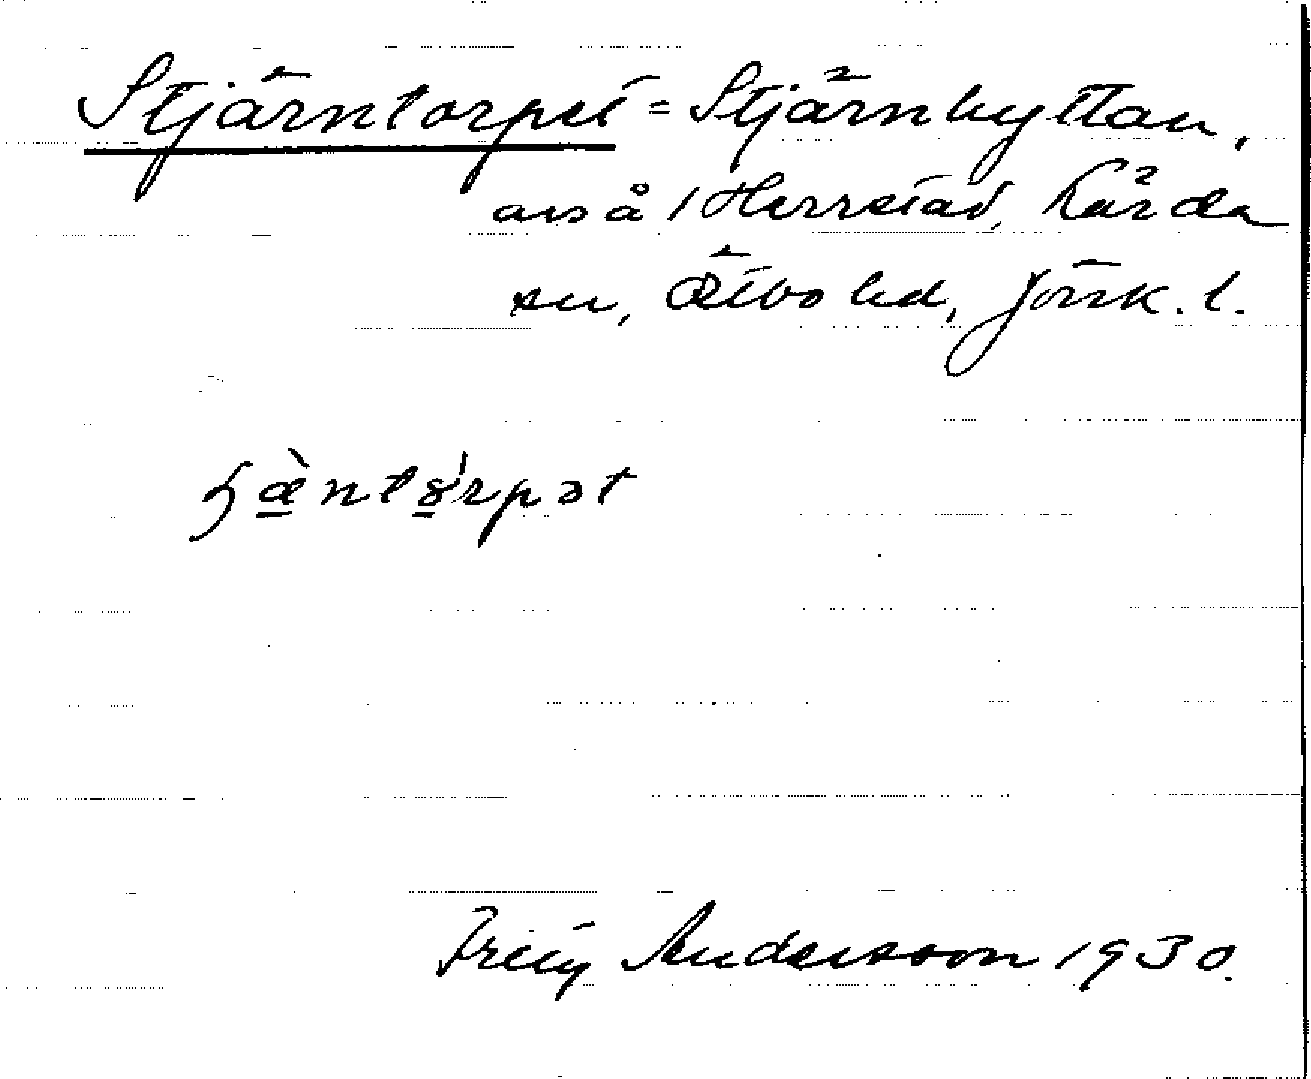 Stjärntorpet = Stjärnhyttan,
avs å 1 Herrestad, Kärda
sn, Östbo hd, Jönk. l.
ɧæ̀ntɷrpət
Andersson 1930.